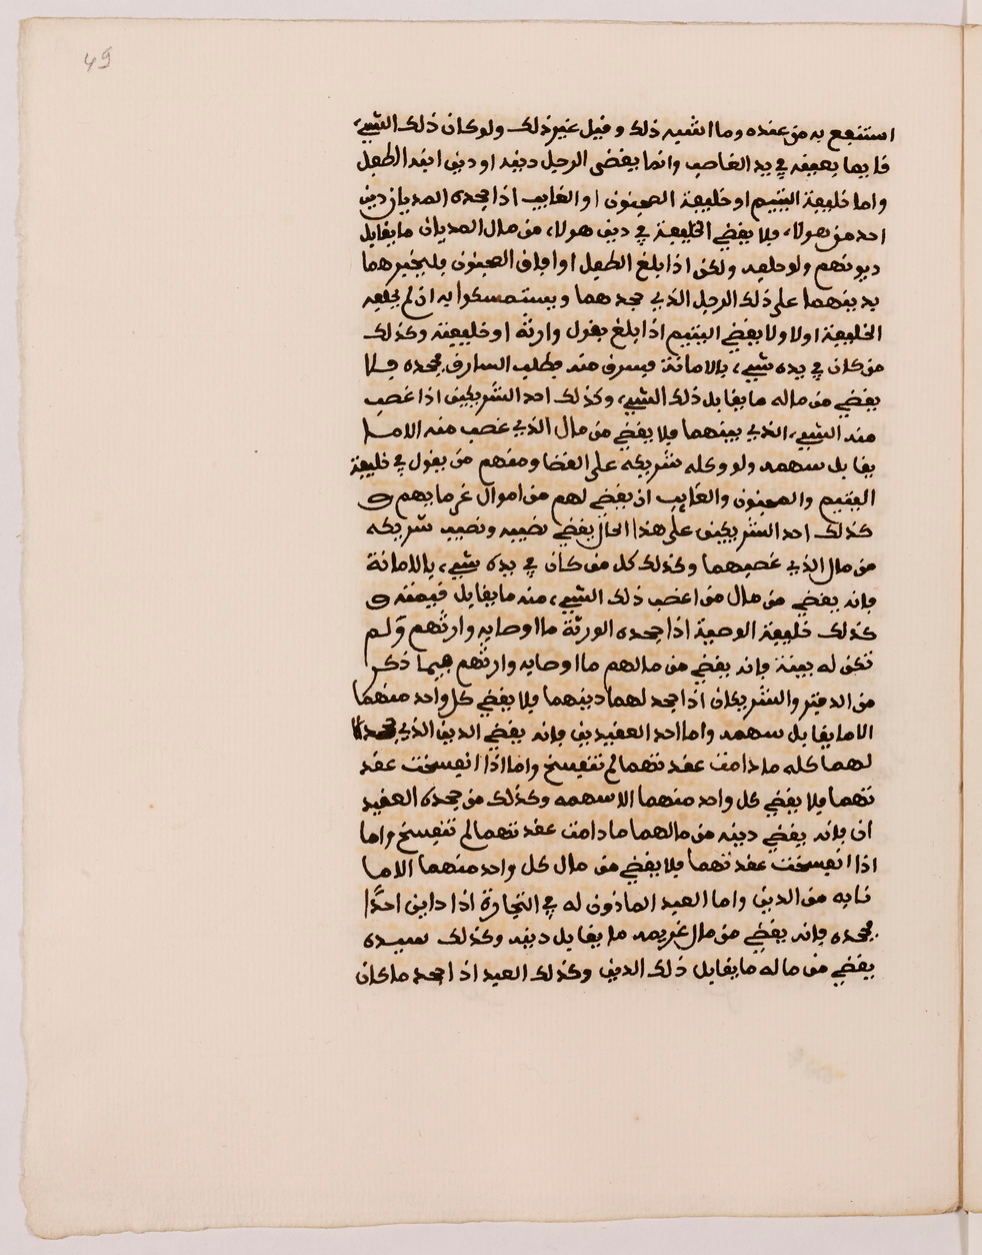 49
استنفع به من عنده وما اشبه ذلك وقيل غير ذلك ولو كان ذلك الشيء
قايما بعينه في يد الغاصب وانما يقضى الرجل دينه او دين ابنه الطفل
واما خليفة اليتيم او خليفة المجنون او الغايب اذا جحده المديان دين
احد من هولاء فلا يقضي الخليفة في دين هولاء من مال المديان ما يقابل
ديونهم ولو حلف ولكن اذا بلغ الطفل او افاق المجنون فليخبرهما
بدينهما على ذلك الرجل الذي جحدهما ويستمسكوا به ان لم يحلفه
الخليفة اولا ولا يقضي اليتيم اذا بلغ بقول وارثه او خليفته وكذلك
من كان في يده شيء بالامانة فسرق منه فطلب السارق فجحده فلا
يقضي من ماله ما يقابل ذلك الشيء وكذلك احد الشريكين اذا غصب
منه الشيء الذي بينهما فلا يقضي من مال الذي غصب منه الا ما
يقابل سهمه ولو وكله شريكه على القضا ومنهم من يقول في خليفة
اليتيم والمجنون والغايب ان يقضي لهم من اموال غرمايهم و
كذلك احد الشريكين على هذا الحال يقضي نصيبه ونصيب شريكه
من مال الذي غصبهما وكذلك كل من كان في يده شيء بالامانة
فانه يقضي من مال من اغصب ذلك الشيء منه ما يقابل قيمته و
كذلك خليفة الوصية اذا جحده الورثة ما اوصا به وارثهم ولم
تكن له بينة فانه يقضي من مالهم ما اوصا به وارثهم فيما ذكر
من الدفتر والشريكان اذا جحد لهما دينهما فلا يقضي كل واحد منهما
الا ما يقابل سهمه واما احد العقيدين فانه يقضي الدين الذي جحد
لهما كله ما دامت عقدتهما لم تنفسخ واما اذا انفسخت عقد
تهما فلا يقضي كل واحد منهما الا سهمه وكذلك من جحده العقيد
ان فانه يقضي دينه من مالهما ما دامت عقدتهما لم تنفسخ واما
اذا انفسخت عقدتهما فلا يقضي من مال كل واحد منهما الا ما
نابه من الدين واما العبد الماذون له في التجارة اذا داين احدًا
فجحده فانه يقضي من مال غريمه ما يقابل دينه وكذلك سيده
يقضي من ماله ما يقابل ذلك الدين وكذلك العبد اذا جحد ما كان